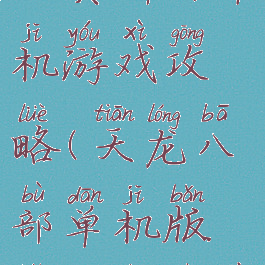 jī yóu xì gōng
机游戏攻
lüè tiān lóng bā
略(天龙八
bù dān jī bǎn
部单机版